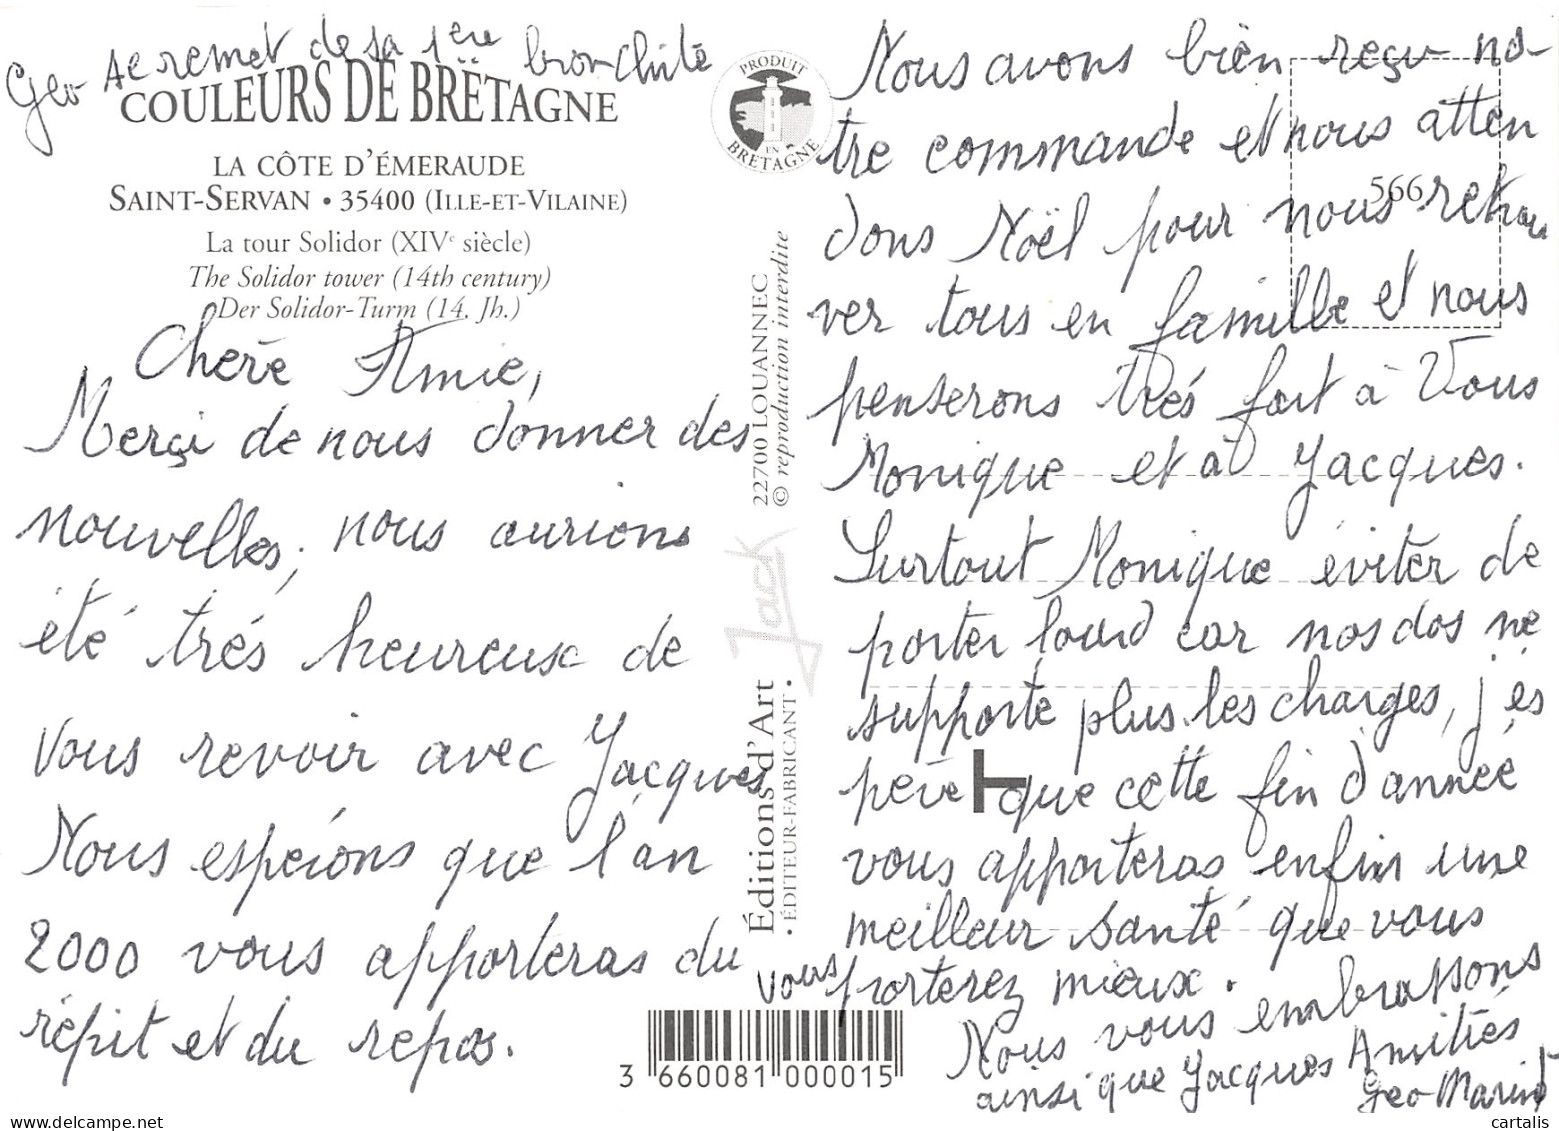 Geo se remet de sa 1ère bronchite
COULEURS DE BRETAGNE
LA CÔTE D'ÉMERAUDE
SAINT-SERVAN • 35400 (ILLE-ET-VILAINE)
La tour Solidor (XIVe siècle)
The Solidor tower (14th century)
Der Solidor-Turm (14. Jh.)
Chère Amie,
Merçi de nous donner des
nouvelles, nous aurions
été trés heureuse de
vous revoir avec Jacques
Nous espéions que l'an
2000 vous apporteras du
répit et du repos.
PRODUIT
EN
BRETAGNE
22700 LOUANNEC
© reproduction interdite
Jack
Éditions d'Art
• ÉDITEUR-FABRICANT •
3 660081 000015
566
Nous avons bien reçu no-
tre commande et nous atten
dons Noël pour nous retrou
ver tous en famille et nous
penserons trés fort à Vous
Monique et à Jacques.
Surtout Monique éviter de
porter lourd car nos dos ne
supporte plus les charges, j'es
père que cette fin d'année
vous apporteras enfin une
meilleur santé que vous
vous porterez mieux.
Nous vous embrassons
ainsi que Jacques Amitiés
Geo